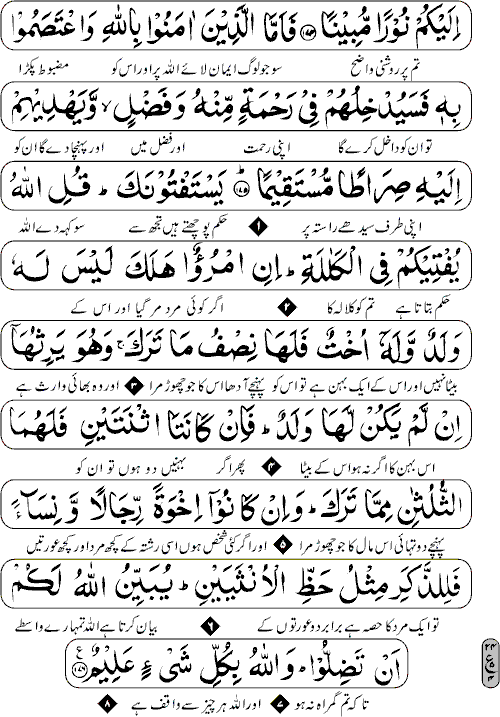 اِلَيْكُمْ نُوْرًا مُّبِيْنًا ﴿۱۷۴﴾ فَاَمَّا الَّذِيْنَ اٰمَنُوْا بِاللّٰهِ وَاعْتَصَمُوْا
تم پر روشنی واضح سو جو لوگ ایمان لائے اللہ پر اور اس کو مضبوط پکڑا
بِهٖ فَسَيُدْخِلُهُمْ فِىْ رَحْمَةٍ مِّنْهُ وَفَضْلٍ ۙ وَّيَهْدِيْهِمْ
تو ان کو داخل کرے گا اپنی رحمت اور فضل میں اور پہنچا دے گا ان کو
اِلَيْهِ صِرَاطًا مُّسْتَقِيْمًا ﴿۱۷۵﴾ ؕ يَسْتَفْتُوْنَكَ ؕ قُلِ اللّٰهُ
اپنی طرف سیدھے راستہ پر ۱ حکم پوچھتے ہیں تجھ سے سو کہہ دے اللہ
يُفْتِيْكُمْ فِى الْكَلٰلَةِ ؕ اِنِ امْرُؤٌا هَلَكَ لَيْسَ لَهٗ
حکم بتاتا ہے تم کو کلالہ کا ۲ اگر کوئی مرد مر گیا اور اس کے
وَلَدٌ وَّلَهٗۤ اُخْتٌ فَلَهَا نِصْفُ مَا تَرَكَ ۚ وَهُوَ يَرِثُهَاۤ
بیٹا نہیں اور اس کے ایک بہن ہے تو اس کو پہنچے آدھا اس کا جو چھوڑ مرا ۳ اور وہ بھائی وارث ہے
اِنْ لَّمْ يَكُنْ لَّهَا وَلَدٌ ؕ فَاِنْ كَانَتَا اثْنَتَيْنِ فَلَهُمَا
اس بہن کا اگر نہ ہو اس کے بیٹا ۴ پھر اگر بہنیں دو ہوں تو ان کو
الثُّلُثٰنِ مِمَّا تَرَكَ ؕ وَاِنْ كَانُوْۤا اِخْوَةً رِّجَالًا وَّ نِسَآءً
پہنچے دو تہائی اس مال کا جو چھوڑ مرا ۵ اور اگر کئی شخص ہوں اسی رشتہ کے کچھ مرد اور کچھ عورتیں
فَلِلذَّكَرِ مِثْلُ حَظِّ الْاُنْثَيَيْنِ ؕ يُبَيِّنُ اللّٰهُ لَكُمْ
تو ایک مرد کا حصہ ہے برابر دو عورتوں کے ۶ بیان کرتا ہے اللہ تمہارے واسطے
اَنْ تَضِلُّوْا ؕ وَاللّٰهُ بِكُلِّ شَىْءٍ عَلِيْمٌ ﴿۱۷۶﴾ ع
تاکہ تم گمراہ نہ ہو ۷ اور اللہ ہر چیز سے واقف ہے ۸